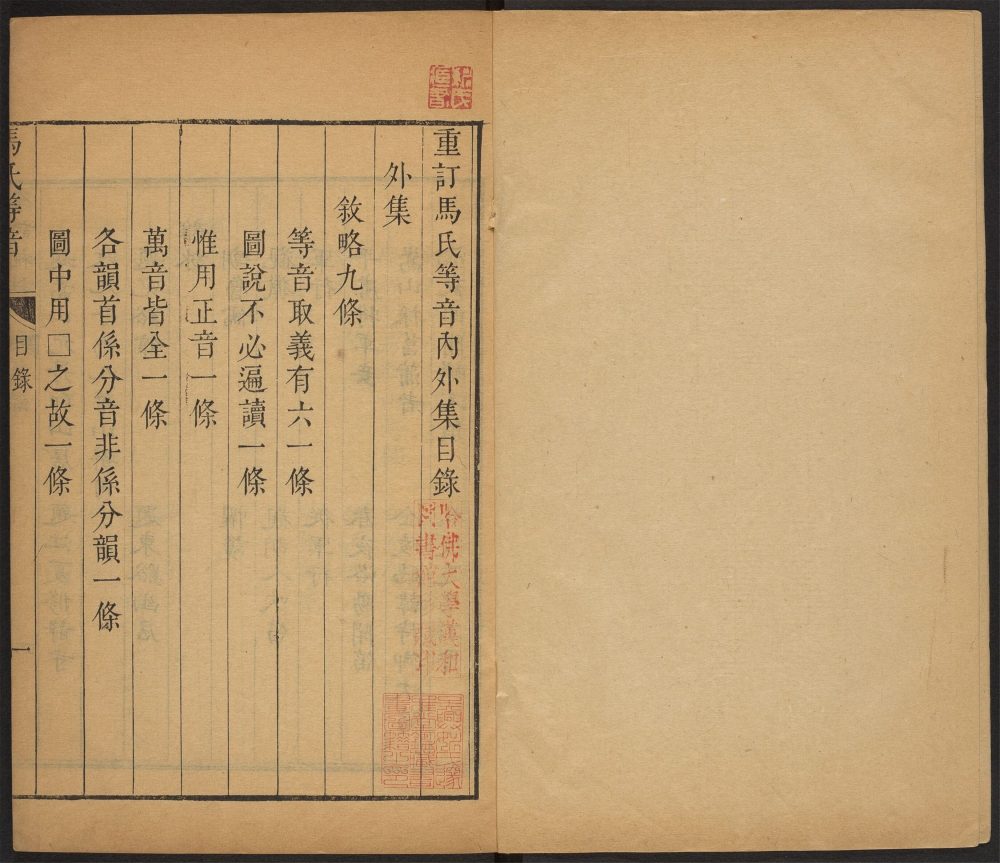 重訂馬氏等音內外集目錄
外集
敘略九條
等音取義有六一條
圖說不必遍讀一條
惟用正音一條
萬音皆全一條
各韻首係分音非係分韻一條
圖中用□之故一條
馬氏等音
目錄
一
哈佛大學漢和
圖書館